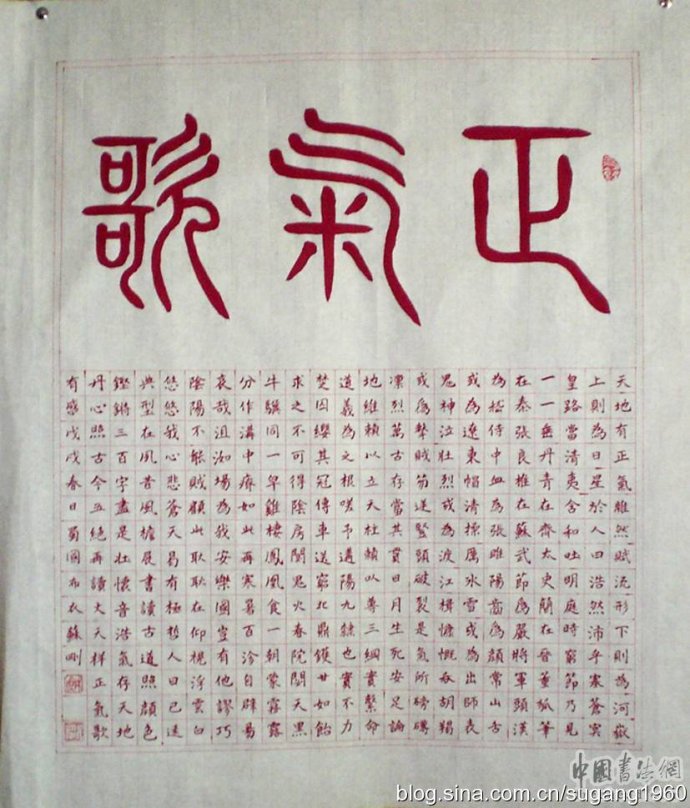 正氣歌
天地有正氣雜然賦流形下則為河嶽
上則為日星於人曰浩然沛乎塞蒼冥
皇路當清夷含和吐明庭時窮節乃見
一一垂丹青在齊太史簡在晉董狐筆
在秦張良椎在蘇武節為嚴將軍頭漢
為嵇侍中血為張睢陽齒為顏常山舌
或為遼東帽清操厲冰雪或為出師表
鬼神泣壯烈或為渡江楫慷慨吞胡羯
或為擊賊笏逆豎頭破裂是氣所磅礴
凜烈萬古存當其貫日月生死安足論
地維賴以立天柱賴以尊三綱實繫命
道義為之根嗟予遘陽九隸也實不力
楚囚纓其冠傳車送窮北鼎鑊甘如飴
求之不可得陰房闃鬼火春院閟天黑
牛驥同一皁雞棲鳳凰食一朝蒙霧露
分作溝中瘠如此再寒暑百沴自辟易
哀哉沮洳場為我安樂國豈有他謬巧
陰陽不能賊顧此耿耿在仰視浮雲白
悠悠我心悲蒼天曷有極哲人日已遠
典型在夙昔風檐展書讀古道照顏色
鏗鏘三百字盡是壯懷音浩氣存天地
丹心照古今五絕再讀文天祥正氣歌
有感戊戌春日蜀國布衣蘇剛
中國書法網
blog.sina.com.cn/sugang1960